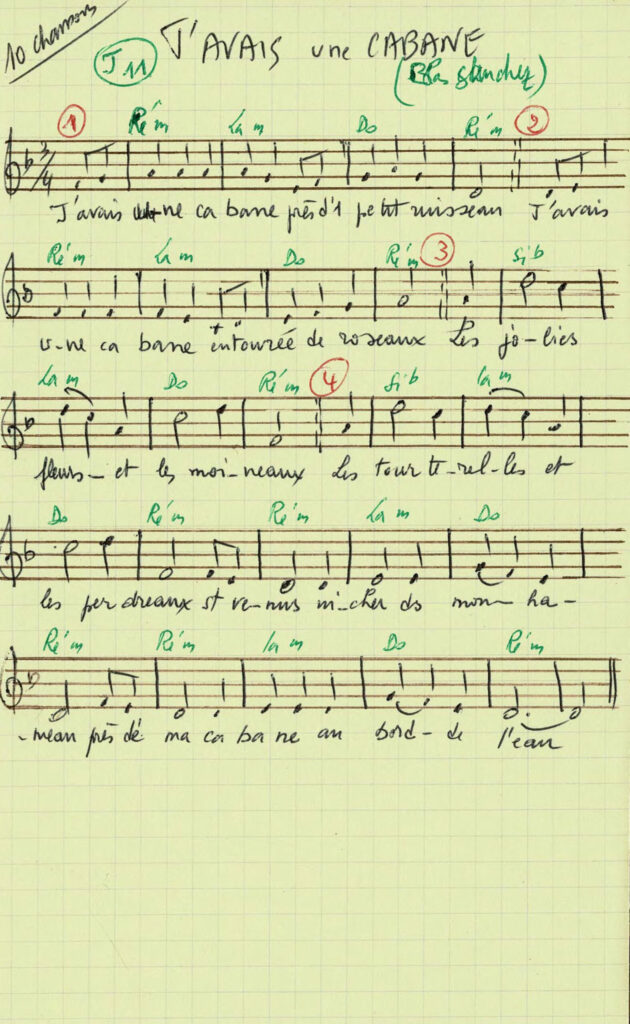 10 chansons
J 11
J'AVAIS une CABANE
1 Ré m La m Do Ré m 2
3/4
J'avais u-ne ca bane près d'1 petit ruisseau J'avais
Ré m La m Do Ré m 3 Si b
u-ne ca bane entourée de roseaux Les jo-lies
La m Do Ré m 4 Si b la m
fleurs- et les moi-neaux Les tour te-rel-les et
Do Ré m Ré m La m Do
les per dreaux st ve-nus ni-cher ds mon- ha-
Ré m Ré m la m Do Ré m
-meau près de ma ca ba ne au bord- de l'eau